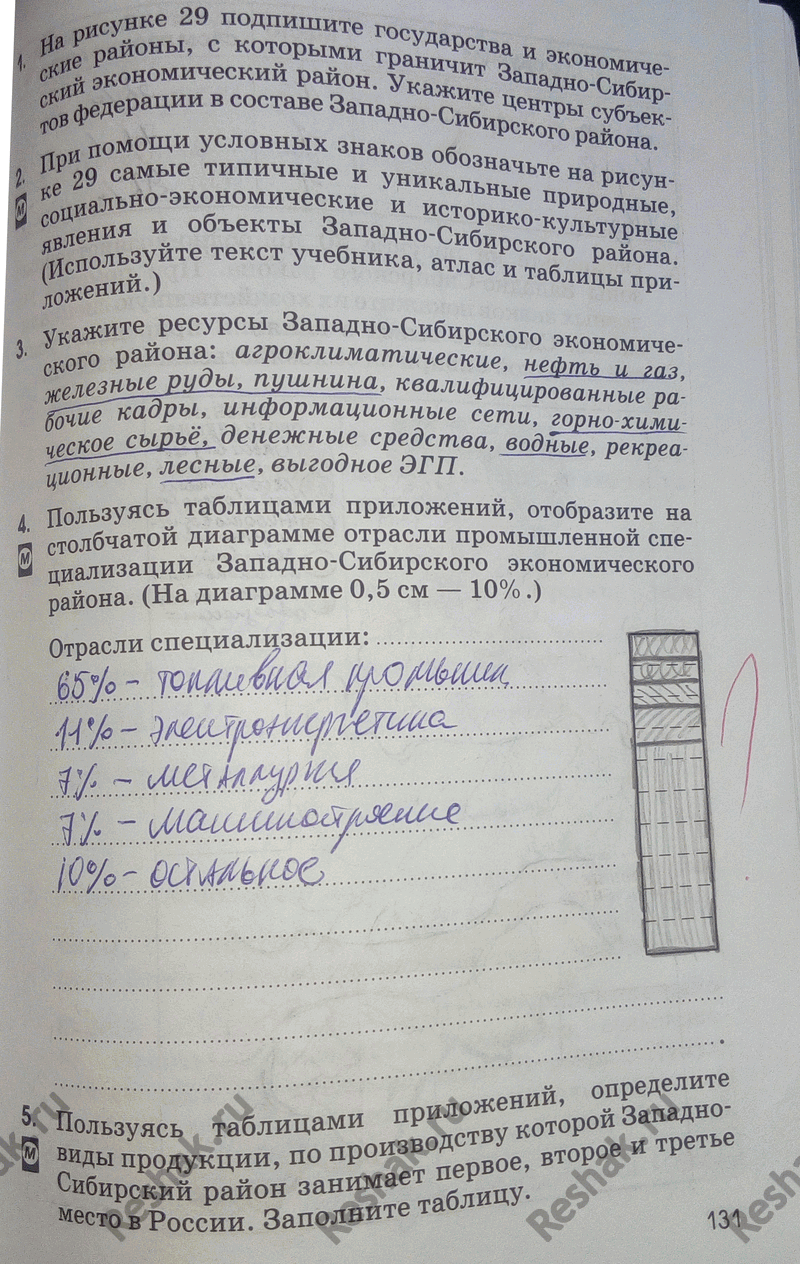 1. На рисунке 29 подпишите государства и экономиче-
ские районы, с которыми граничит Западно-Сибир-
ский экономический район. Укажите центры субъек-
тов федерации в составе Западно-Сибирского района.
2. При помощи условных знаков обозначьте на рисун-
М ке 29 самые типичные и уникальные природные,
социально-экономические и историко-культурные
явления и объекты Западно-Сибирского района.
(Используйте текст учебника, атлас и таблицы при-
ложений.)
3. Укажите ресурсы Западно-Сибирского экономиче-
ского района: агроклиматические, нефть и газ,
железные руды, пушнина, квалифицированные ра-
бочие кадры, информационные сети, горно-хими-
ческое сырьё, денежные средства, водные, рекреа-
ционные, лесные, выгодное ЭГП.
4. Пользуясь таблицами приложений, отобразите на
М столбчатой диаграмме отрасли промышленной спе-
циализации Западно-Сибирского экономического
района. (На диаграмме 0,5 см — 10%.)
Отрасли специализации:
65% - топливная промышл
11% - электроэнергетика
7% - металлургия
7% - машиностроение
10% - остальное
5. Пользуясь таблицами приложений, определите
М виды продукции, по производству которой Западно-
Сибирский район занимает первое, второе и третье
место в России. Заполните таблицу.
131
Reshak.ru
Reshak.ru
Reshak.ru
Reshak.ru